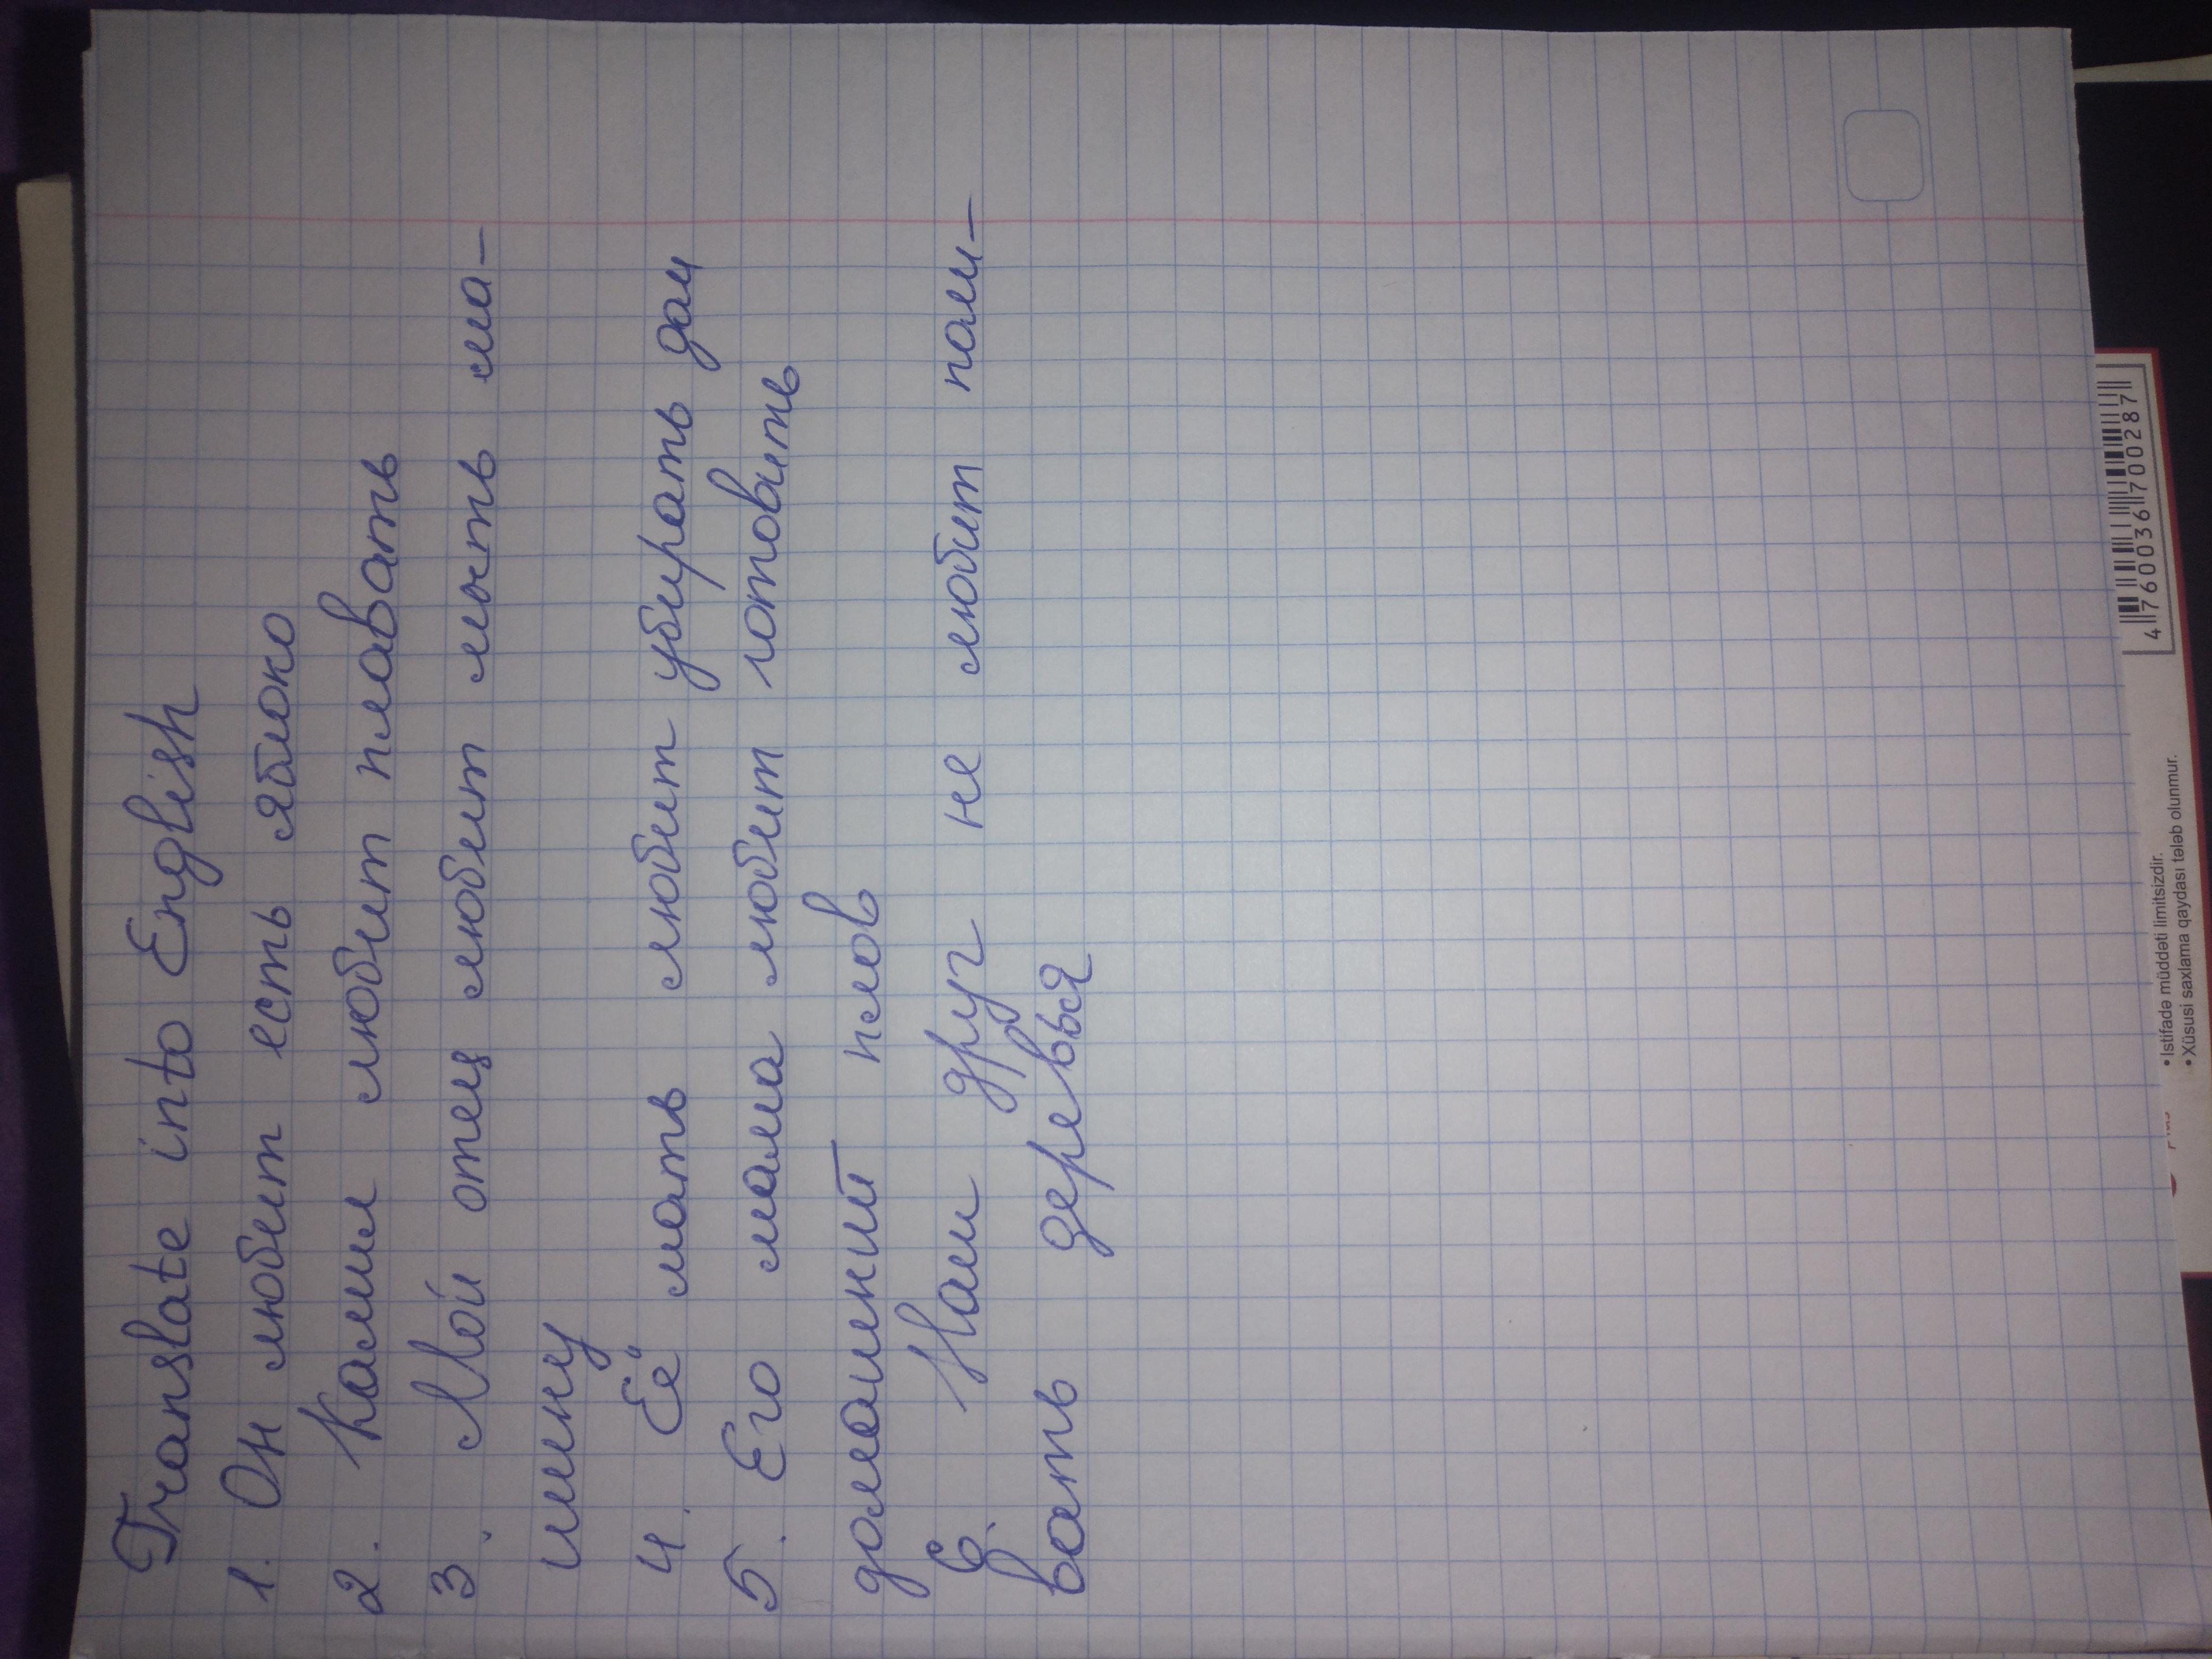 Translate into English
1. Он любит есть яблоко
2. Камил любит плавать
3. Мой отец любит мыть ма-
шину
4. Её мать любит убирать дом
5. Его мама любит готовить
домашний плов
6. Наш друг не любит поли-
вать деревья
4 760036 700287
• Istifadə müddəti limitsizdir.
• Xüsusi saxlama qaydası tələb olunmur.